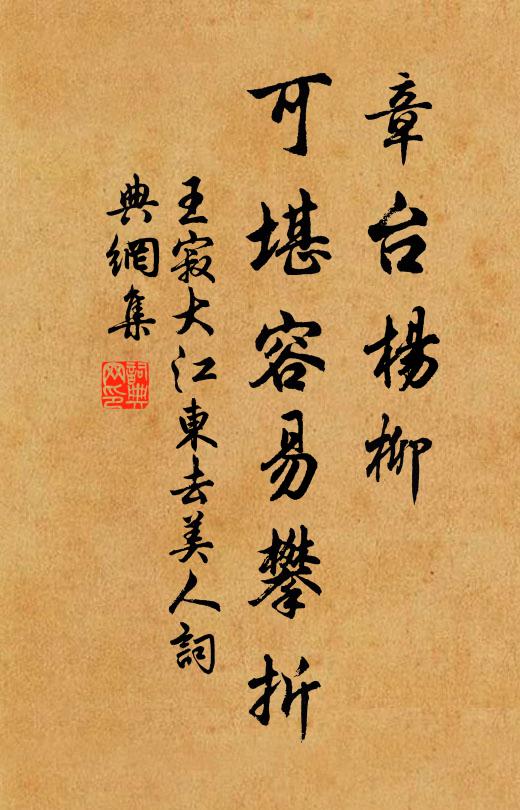 章台楊柳
可堪容易攀折
王寂大江東去美人詞
典網集
詞典
网印